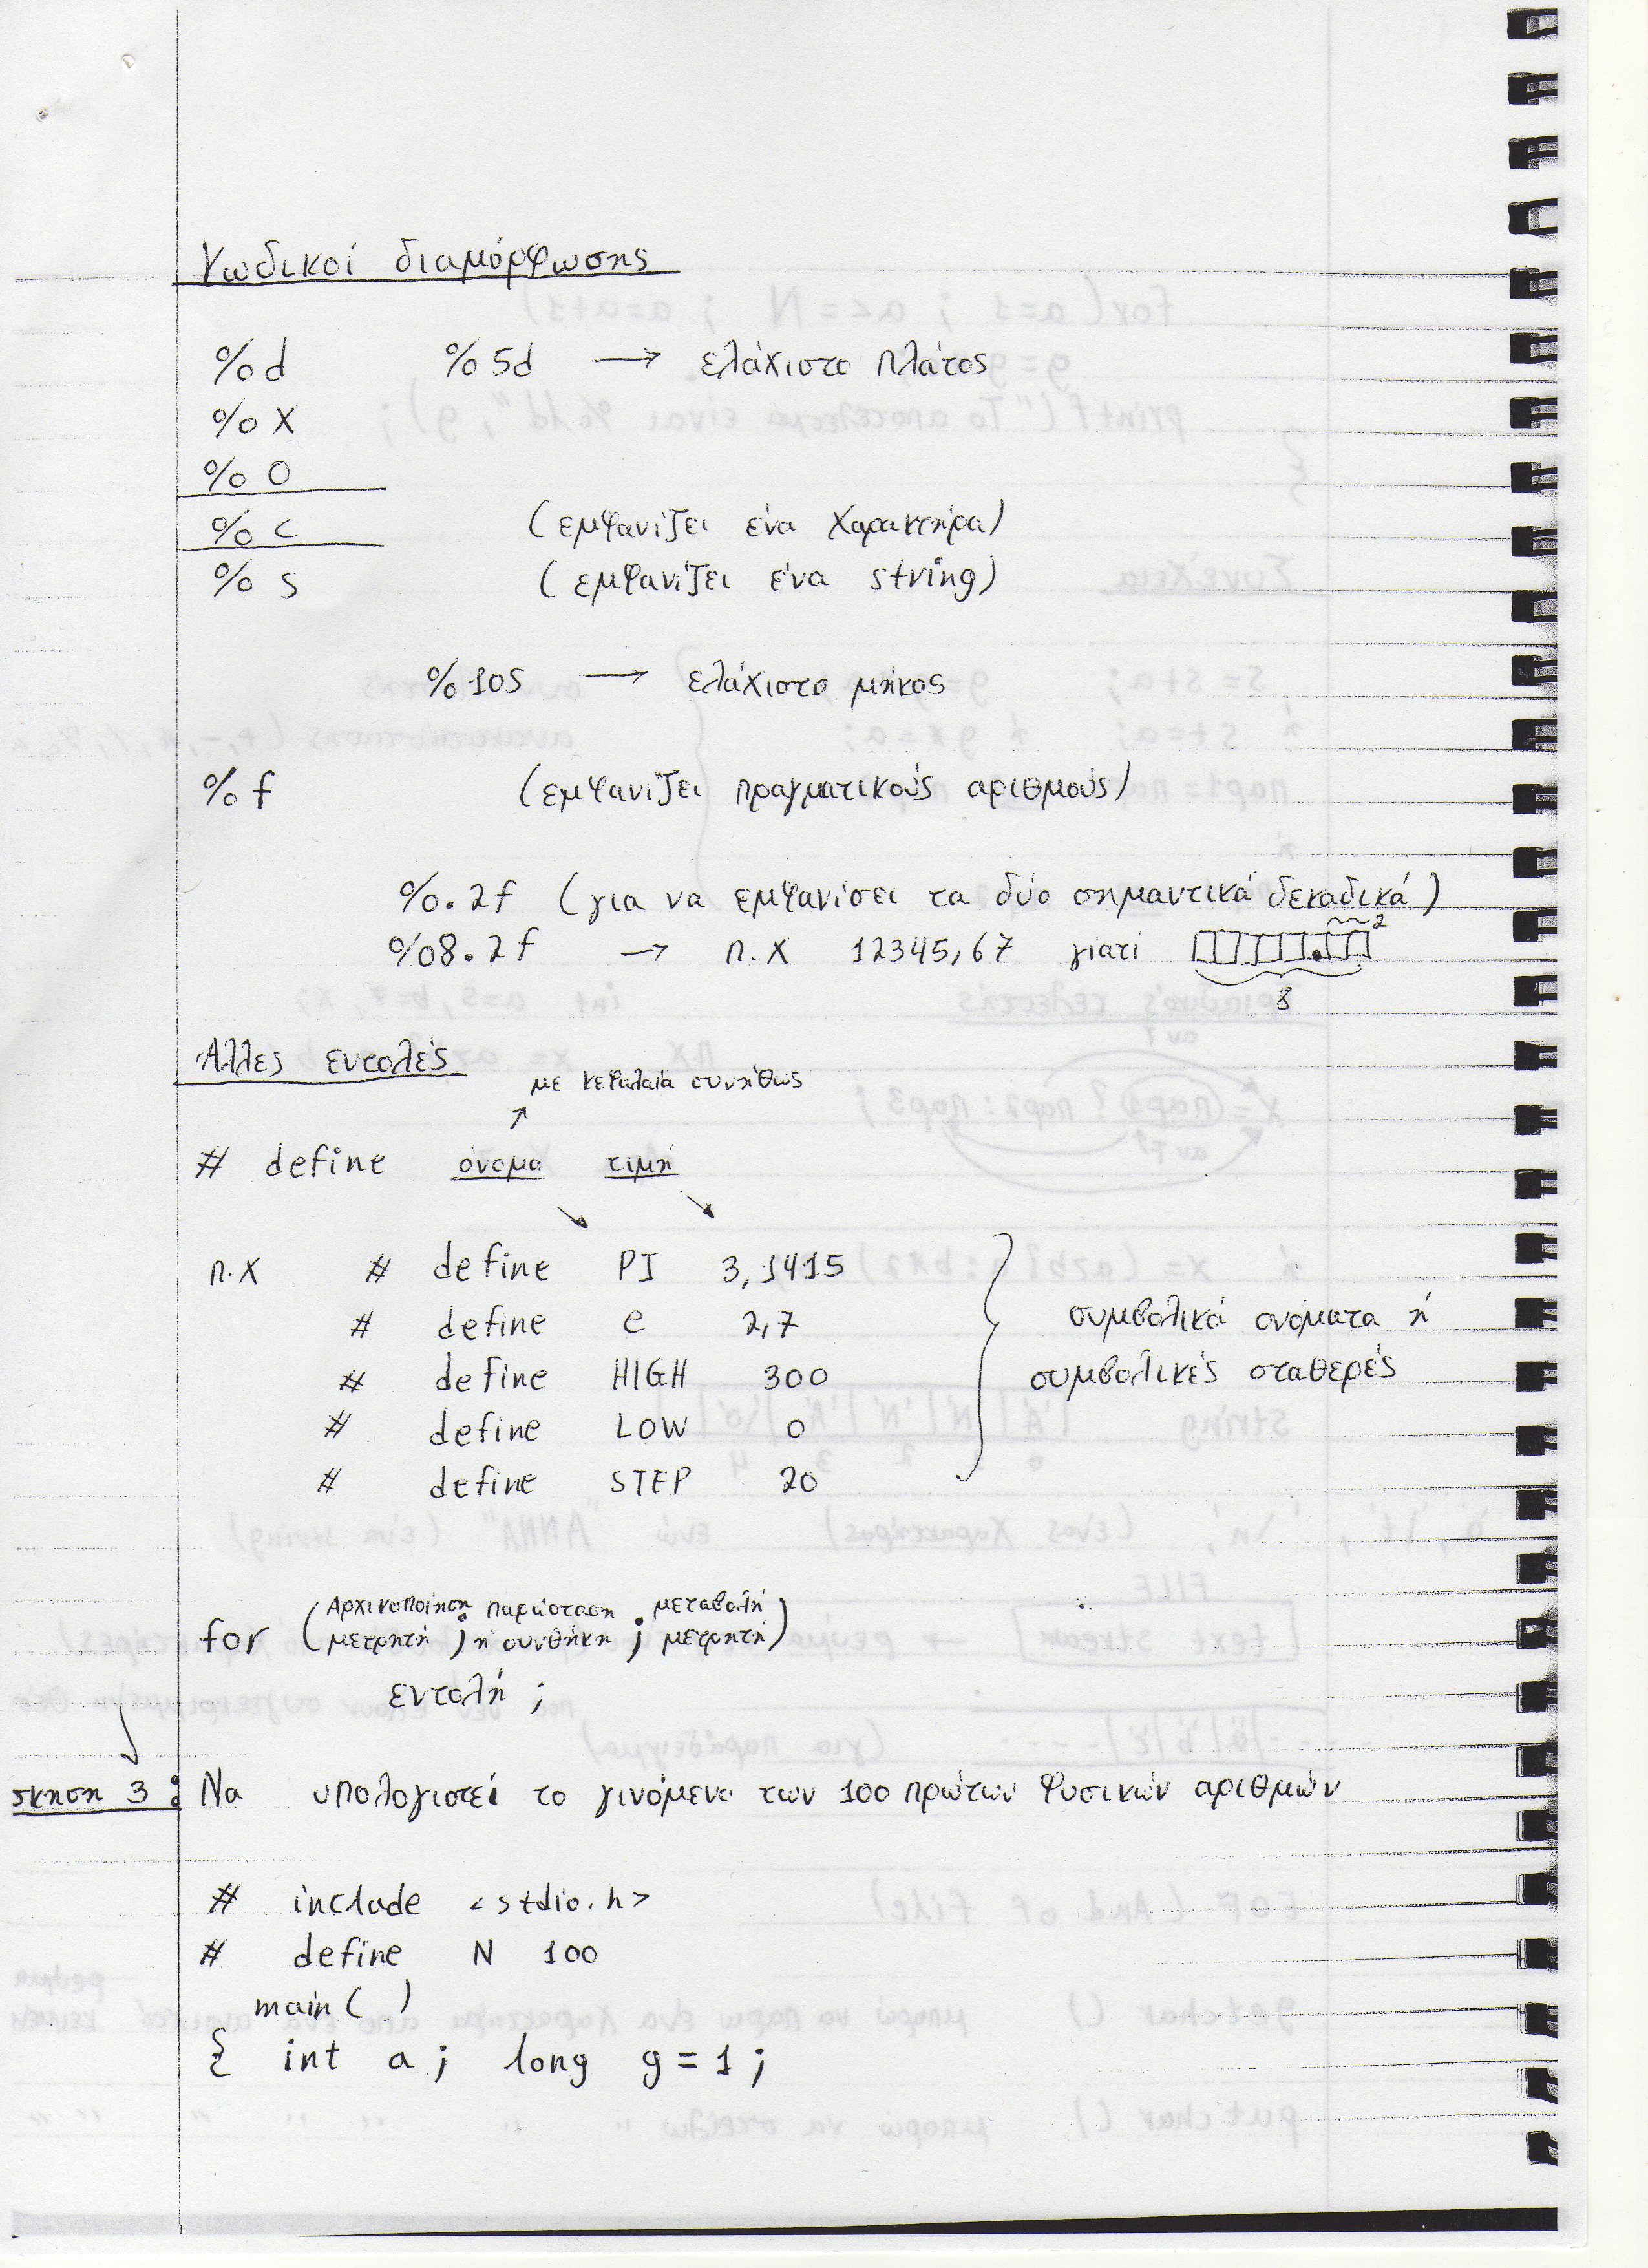 Κωδικοί διαμόρφωσης
%d %5d → ελάχιστο πλάτος
%x
%o
%c (εμφανίζει ένα χαρακτήρα)
%s (εμφανίζει ένα string)
%10s → ελάχιστο μήκος
%f (εμφανίζει πραγματικούς αριθμούς)
%.2f (για να εμφανίσει τα δύο σημαντικά δεκαδικά)
%8.2f → π.χ 12345,67 γιατί 2
8
Άλλες εντολές
με κεφαλαία συνήθως
# define όνομα τιμή
π.χ # define PI 3,1415
# define e 2,7
# define HIGH 300
# define LOW 0
# define STEP 20
συμβολικά ονόματα ή
συμβολικές σταθερές
for (Αρχικοποίηση μετρητή ; παράσταση ή συνθήκη ; μεταβολή μετρητή)
εντολή ;
σκηση 3 : Να υπολογιστεί το γινόμενο των 100 πρώτων φυσικών αριθμών
# include <stdio.h>
# define N 100
main( )
{ int a ; long g = 1 ;